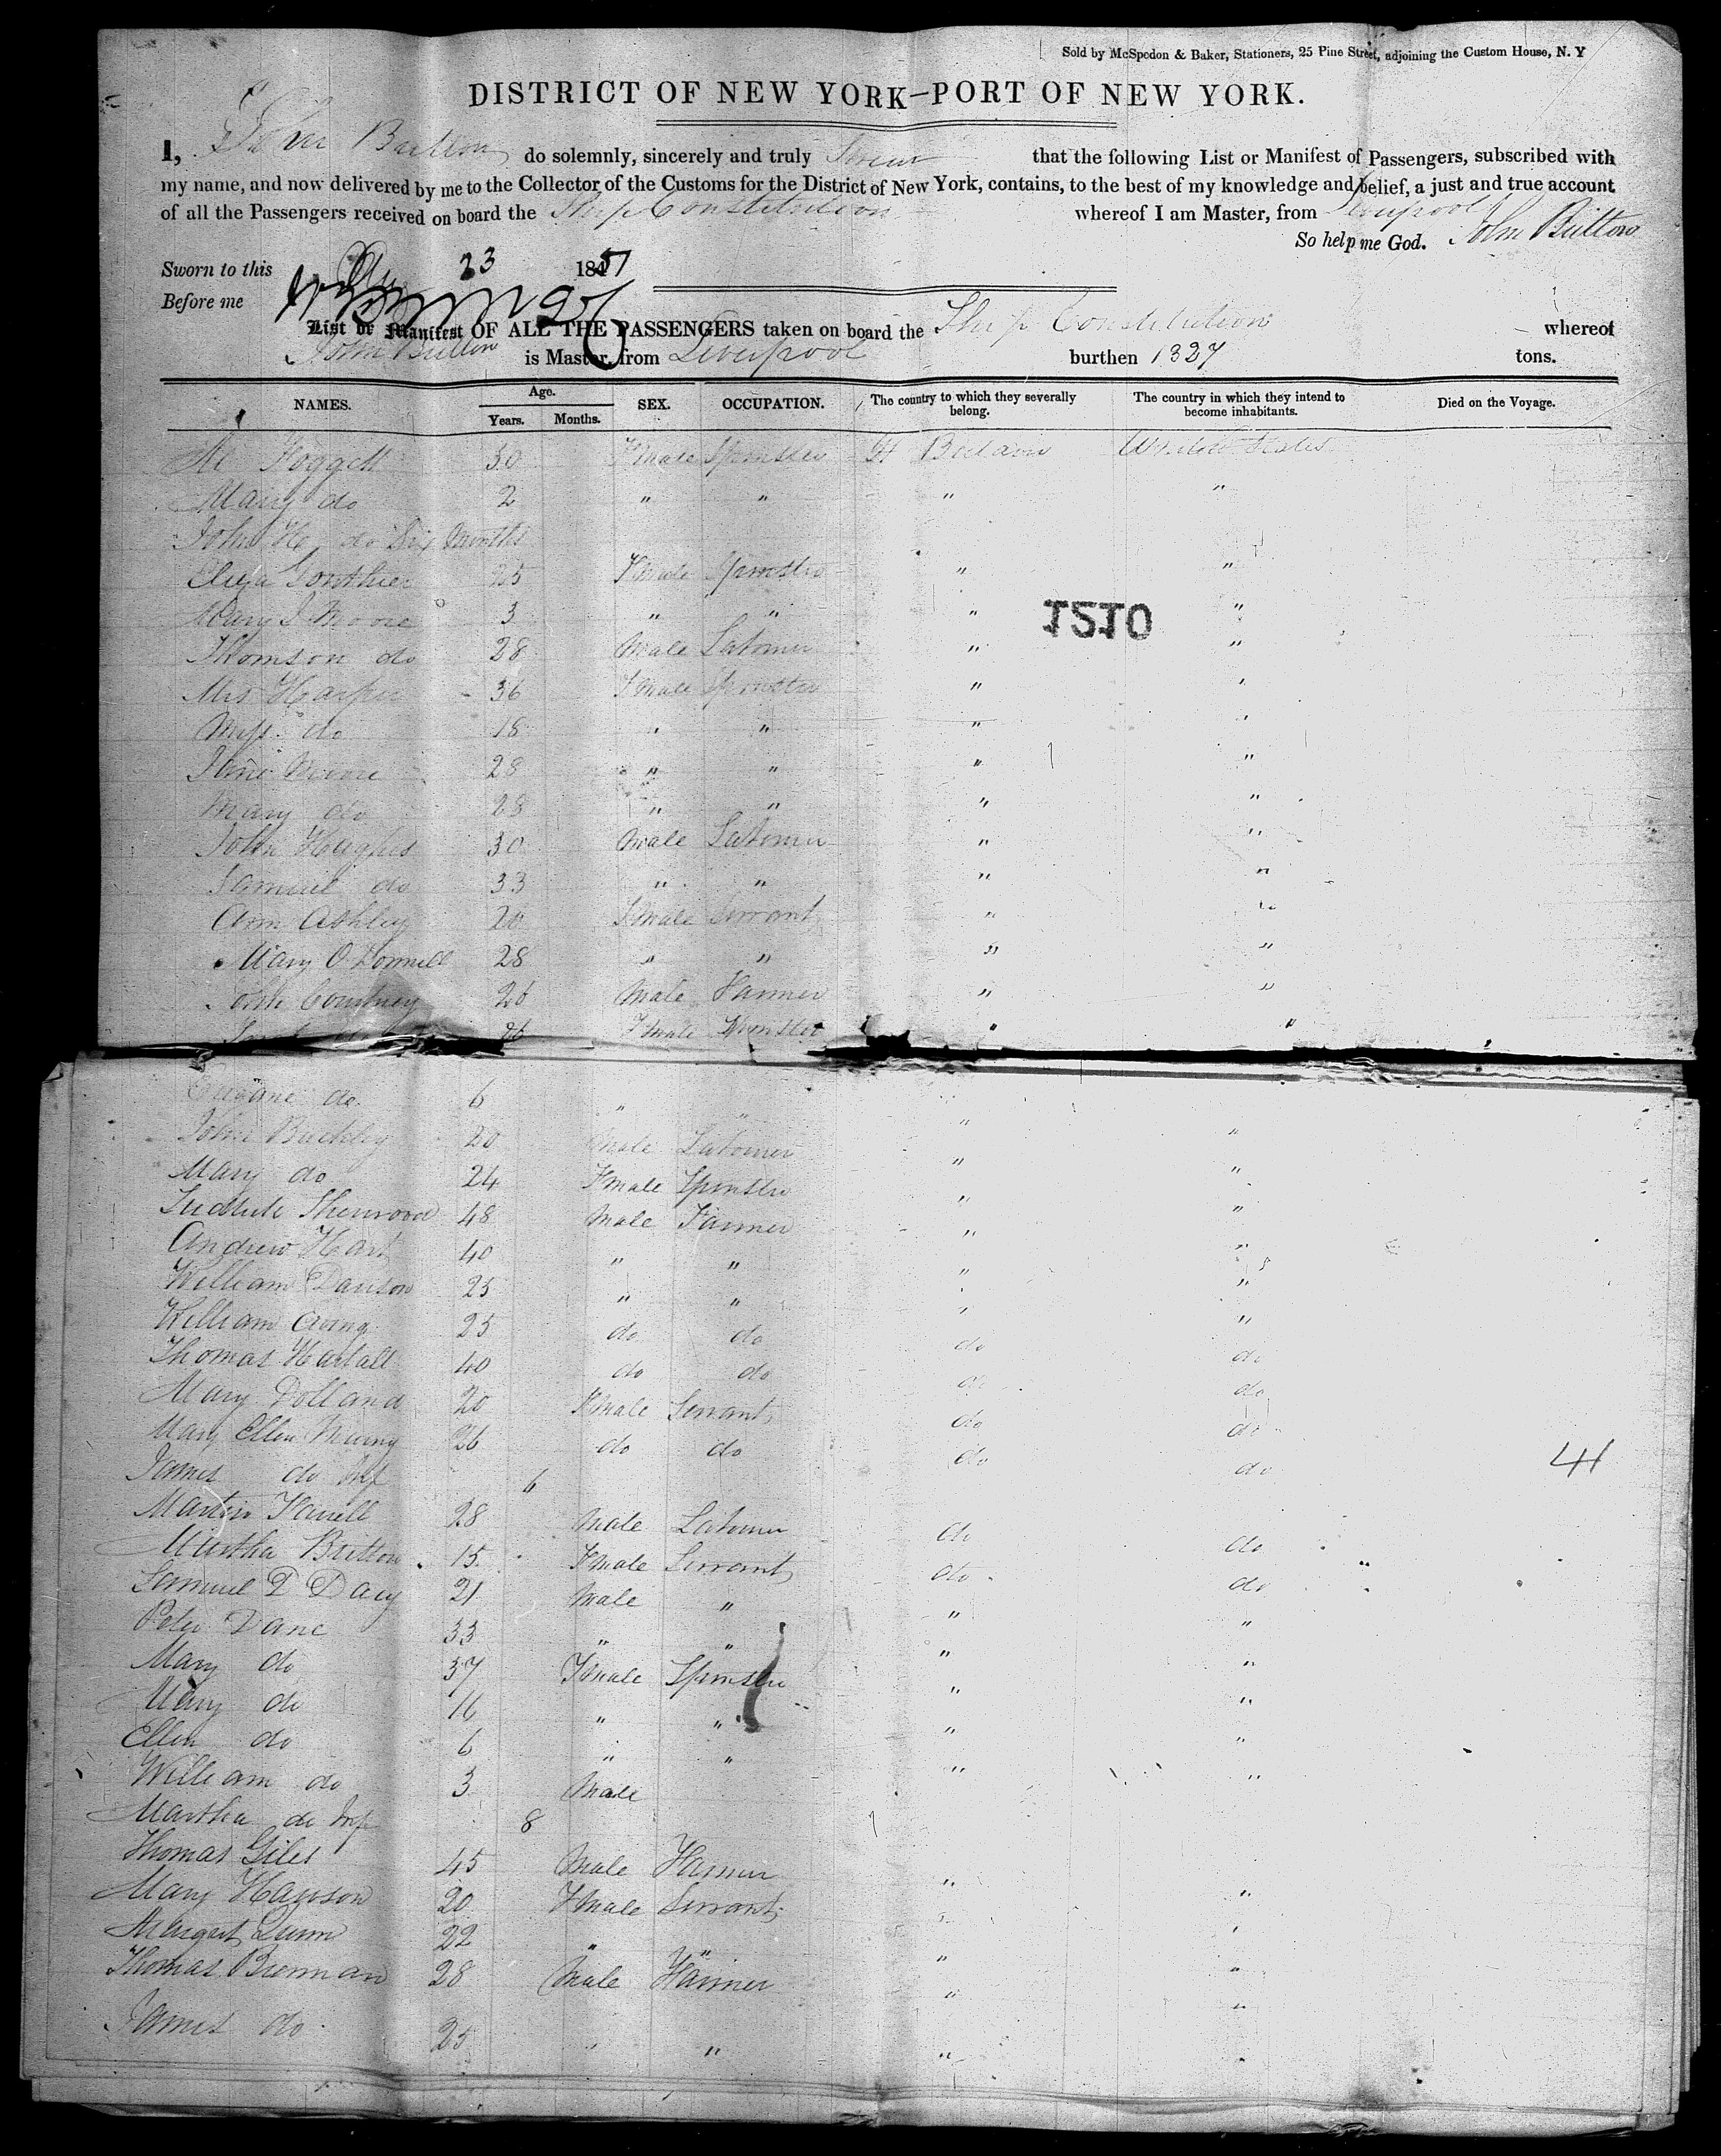 Sold by McSpedon & Baker, Stationers, 25 Pine Street, adjoining the Custom House, N. Y
DISTRICT OF NEW YORK—PORT OF NEW YORK.
I, John Britton do solemnly, sincerely and truly Swear that the following List or Manifest of Passengers, subscribed with
my name, and now delivered by me to the Collector of the Customs for the District of New York, contains, to the best of my knowledge and belief, a just and true account
of all the Passengers received on board the Ship Constitution whereof I am Master, from Liverpool
So help me God. John Britton
Sworn to this 23 185
Before me
List or Manifest OF ALL THE PASSENGERS taken on board the Ship Constitution whereof
John Britton is Master, from Liverpool burthen 1327 tons.
NAMES. Age. Years. Months. SEX. OCCUPATION. The country to which they severally belong. The country in which they intend to become inhabitants. Died on the Voyage.
Foggett 30 Female Spinster Gt Britain United States
Mary do 2 " " " "
John H do Six Months
Eliza Gonthier 25 Female Spinster " "
Mary J Moore 3 " " " "
1210
Thomson do 28 Male Laborer " "
Mrs Harper 36 Female Spinster " "
Miss do 18 " " " "
Jane Moore 28 " " " "
Mary do 28 " " " "
John Hughes 30 Male Laborer " "
Samuel do 33 " " " "
Ann Ashley 20 Female Servant " "
Mary O Donnell 28 " " " "
Courtney 26 Male Farmer " "
26 Female Spinster " "
do 6 " " " "
John Buckley 20 Male Laborer " "
Mary do 24 Female Spinster " "
Sherwood 48 Male Farmer " "
Andrew Hart 40 " " " "
William Dawson 25 " " " "
William 25 do do do do
Thomas Hartall 40 do do do do
Mary Dolland 20 Female Servant do do
Mary Ellen 26 do do do do
41
James do Inf 6
Martin Farrell 28 Male Laborer do do
Martha Britton 15 Female Servant do do
Samuel D Dacy 21 Male " " "
Peter Dane 33 " " " "
Mary do 37 Female Spinster " "
Mary do 16 " " " "
Ellen do 6 " " " "
William do 3 Male "
Martha do Inf 8
Thomas Giles 45 Male Farmer " "
Mary Hanson 20 Female Servant " "
Margaret Quinn 22 " " " "
Thomas Brennan 28 Male Farmer " "
James do 25 " " " "